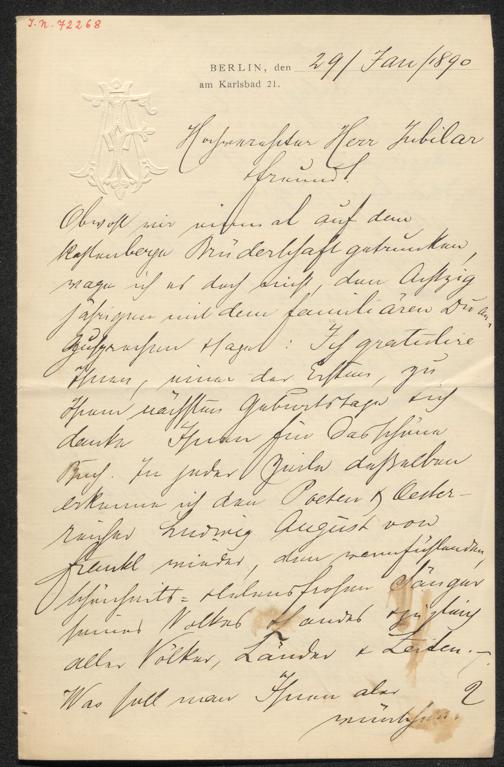 I.N. 72268
BERLIN, den 29/ Jan/1890
am Karlsbad 21.
Hochverehrter Herr Jubilar
Freund!
Obwohl wir einmal auf dem
Kahlenberge Brüderschaft getrunken,
wage ich es doch nicht, den Achtzig
jährigen mit dem familiären Du an-
zusprechen & sage: Ich gratulire
Ihnen, einer der Ersten, zu
Ihrem nächsten Geburtstage & ich
danke Ihnen für das schöne
Buch. In jeder Zeile desselben
erkenne ich den Poeten & Oester-
reicher Ludwig August von
Frankl wieder, den warmfühlenden,
schönheits= & lebensfrohen Sänger
seines Volkes & Landes & zugleich
aller Völker, Länder & Zeiten. –
Was soll man Ihnen aber
wünschen